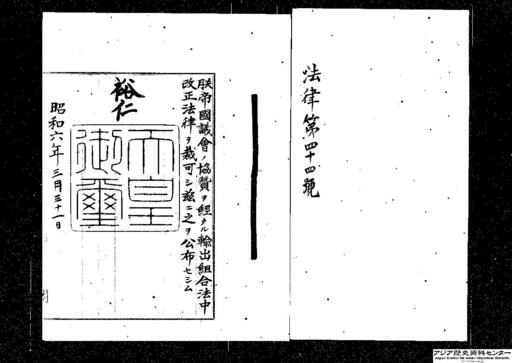 法律第四十四號
朕帝國議會ノ協賛ヲ經タル輸出組合法中
改正法律ヲ裁可シ茲ニ之ヲ公布セシム
裕仁
天皇
御璽
昭和六年三月三十一日
アジア歴史資料センター
Japan Center for Asian Historical Records